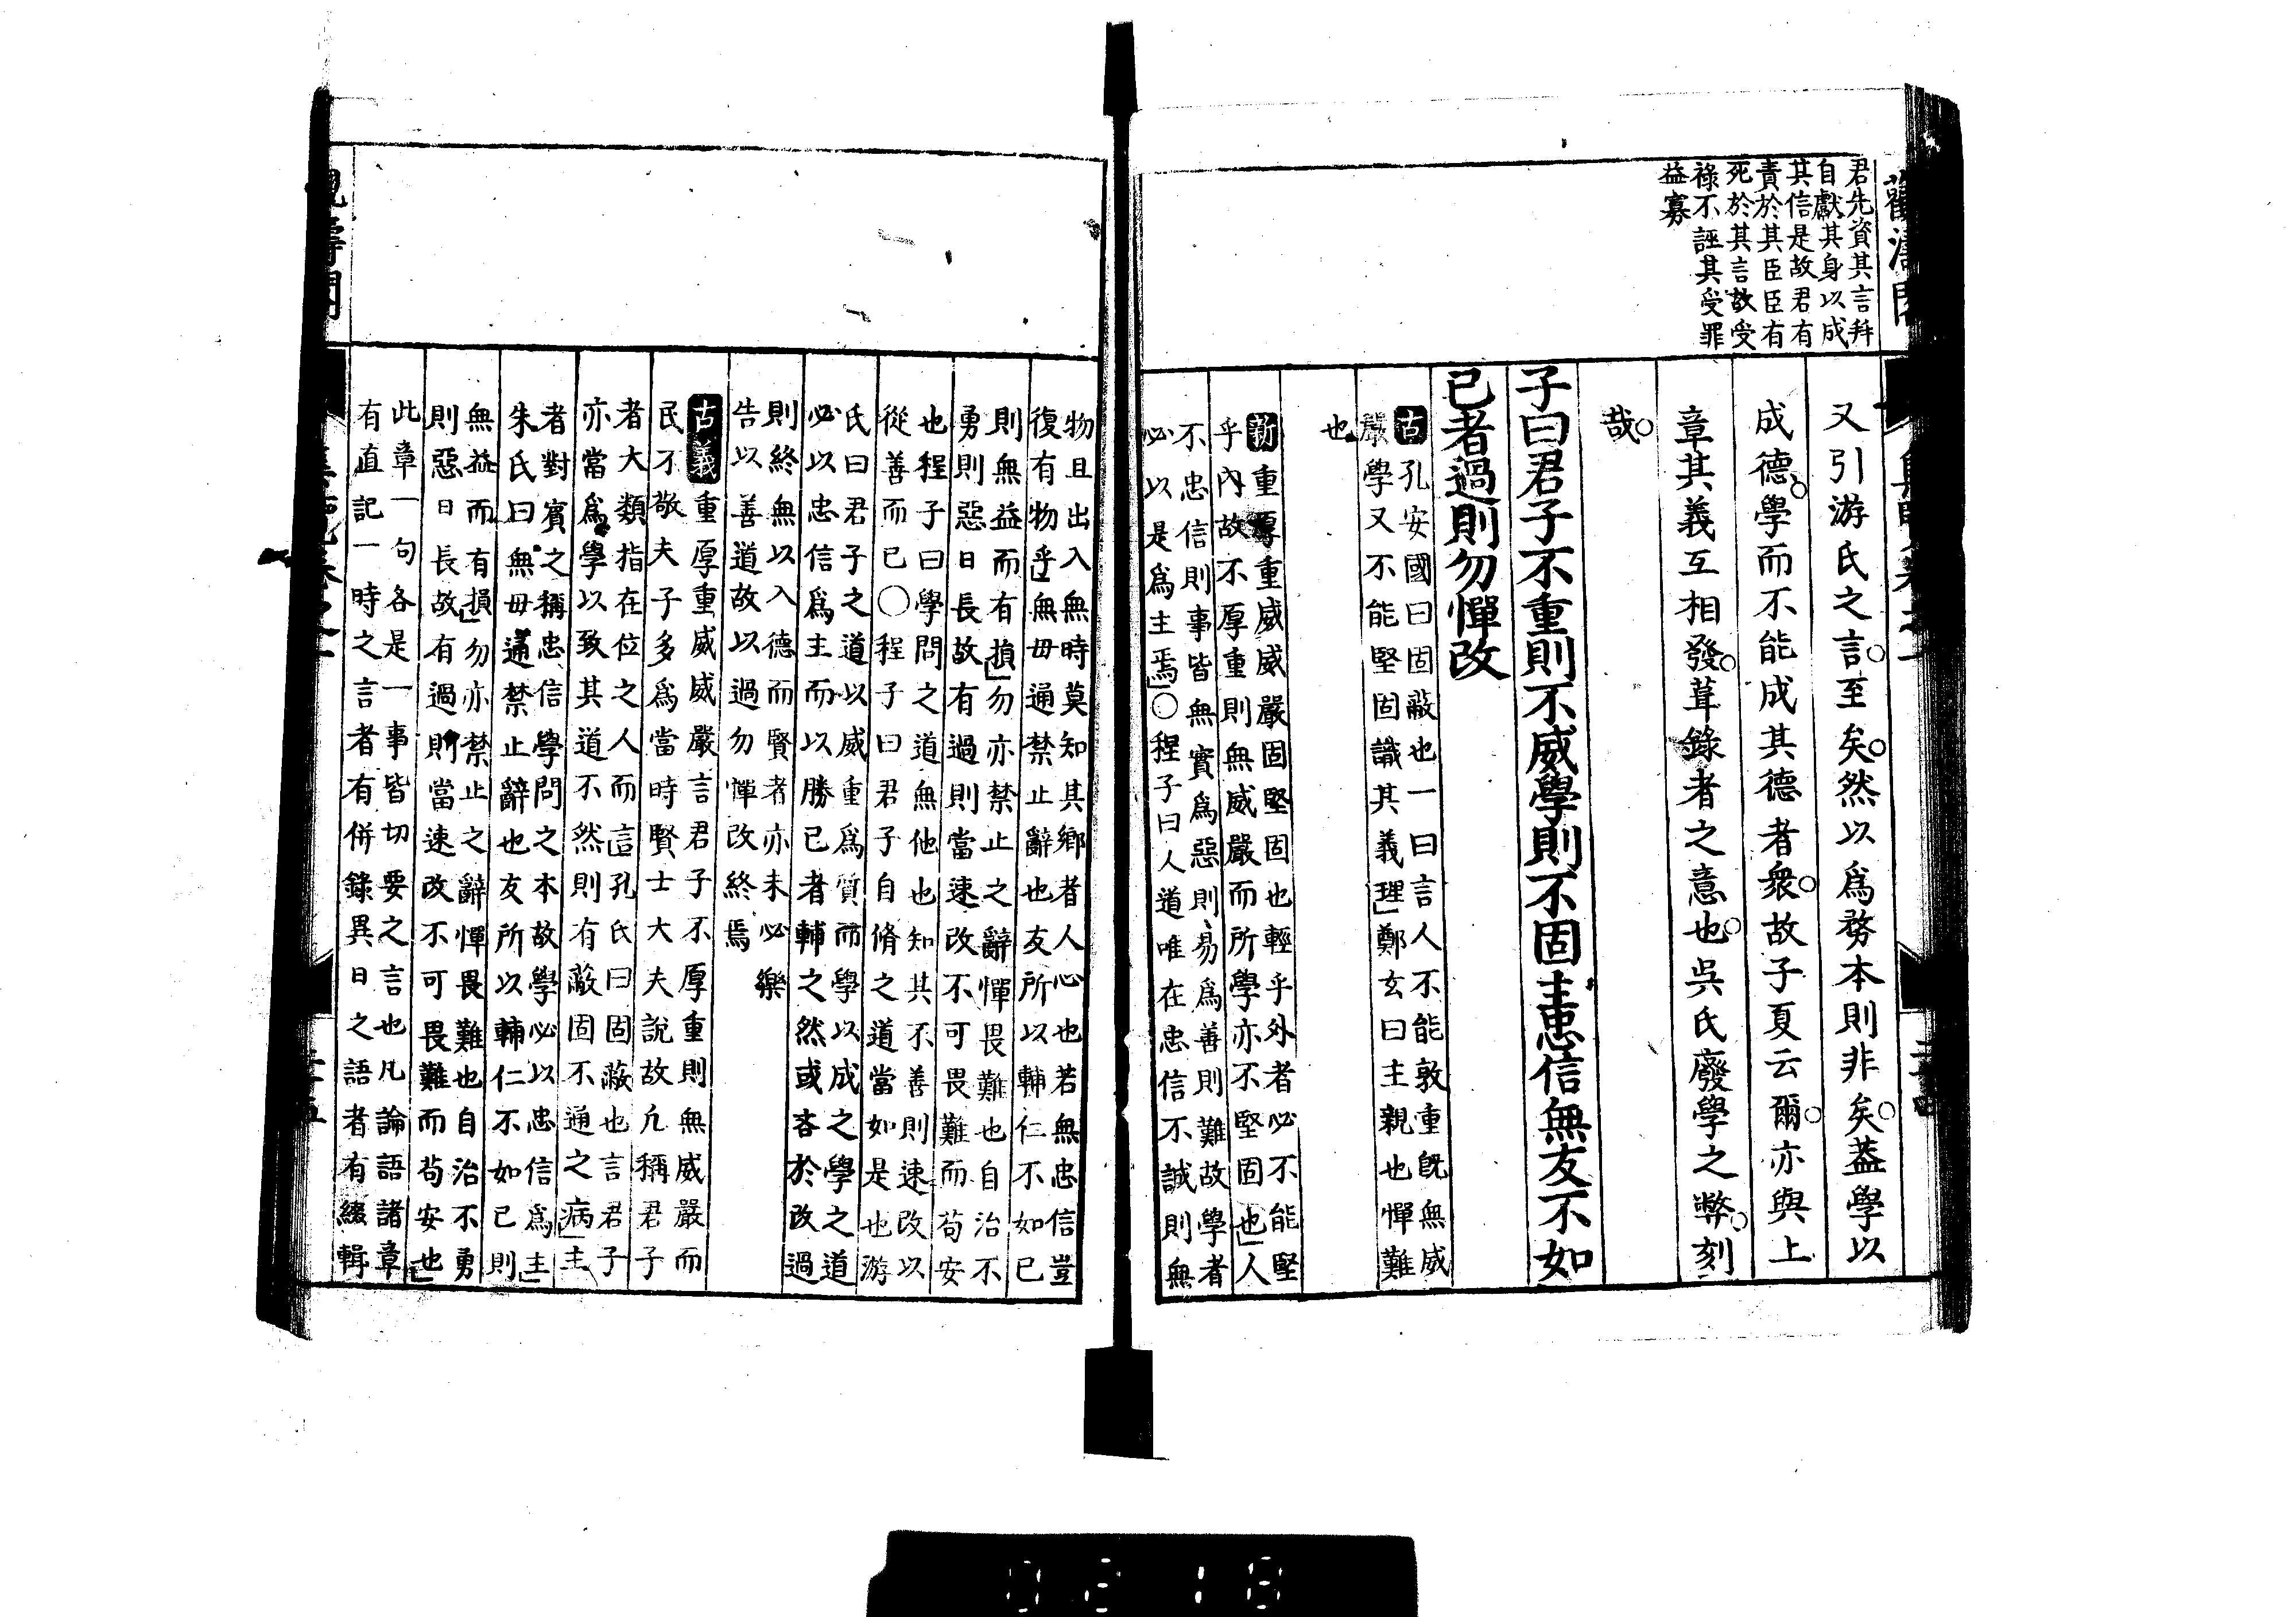 君先資其言拜
自獻其身以成
其信是故君有
責於其臣臣有
死於其言故受
祿不誣其受罪
益寡
又引游氏之言至矣然以爲務本則非矣蓋學以
成德學而不能成其德者衆故子夏云爾亦與上
章其義互相發葺錄者之意也吳氏廢學之弊刻
哉
子曰君子不重則不威學則不固主忠信無友不如
己者過則勿憚改
古孔安國曰固蔽也一曰言人不能敦重旣無威
嚴學又不能堅固識其義理鄭玄曰主親也憚難
也
新重厚重威威嚴固堅固也輕乎外者必不能堅
乎內故不厚重則無威嚴而所學亦不堅固也人
不忠信則事皆無實爲惡則易爲善則難故學者
必以是爲主焉○程子曰人道唯在忠信不誠則無
物且出入無時莫知其鄉者人心也若無忠信豈
復有物乎無毋通禁止辭也友所以輔仁不如己
則無益而有損勿亦禁止之辭憚畏難也自治不
勇則惡日長故有過則當速改不可畏難而苟安
也程子曰學問之道無他也知其不善則速改以
從善而已○程子曰君子自脩之道當如是也游
氏曰君子之道以威重爲質而學以成之學之道
必以忠信爲主而以勝己者輔之然或吝於改過
則終無以入德而賢者亦未必樂
告以善道故以過勿憚改終焉
古義重厚重威威嚴言君子不厚重則無威嚴而
民不敬夫子多爲當時賢士大夫說故凢稱君子
者大類指在位之人而言孔氏曰固蔽也言君子
亦當爲學以致其道不然則有蔽固不通之病主
者對賓之稱忠信學問之本故學必以忠信爲主
朱氏曰無毋通禁止辭也友所以輔仁不如己則
無益而有損勿亦禁止之辭憚畏難也自治不勇
則惡日長故有過則當速改不可畏難而苟安也
此章一句各是一事皆切要之言也凡論語諸章
有直記一時之言者有併錄異日之語者有綴輯